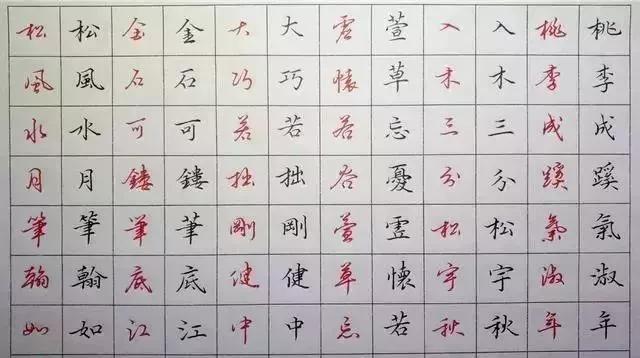 桃李成蹊氣淑年
桃李成蹊氣淑年
入木三分松宇秋
入木三分松宇秋
萱草忘憂虛懷若
虛懷若谷萱草忘
大巧若拙剛健中
大巧若拙剛健中
金石可鏤筆底江
金石可鏤筆底江
松風水月筆翰如
松風水月筆翰如